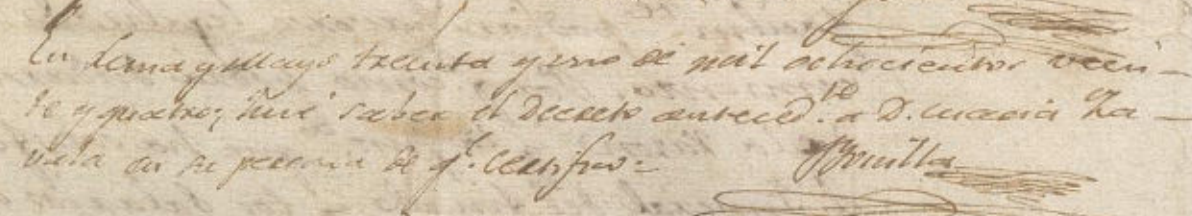 En Lima y Mayo treinta y uno de mil ochocientos vein-
te y quatro; hise saber el Decreto anteced.te a D. Maria Za-
vala en su persona de q.e certifico=
Bonilla